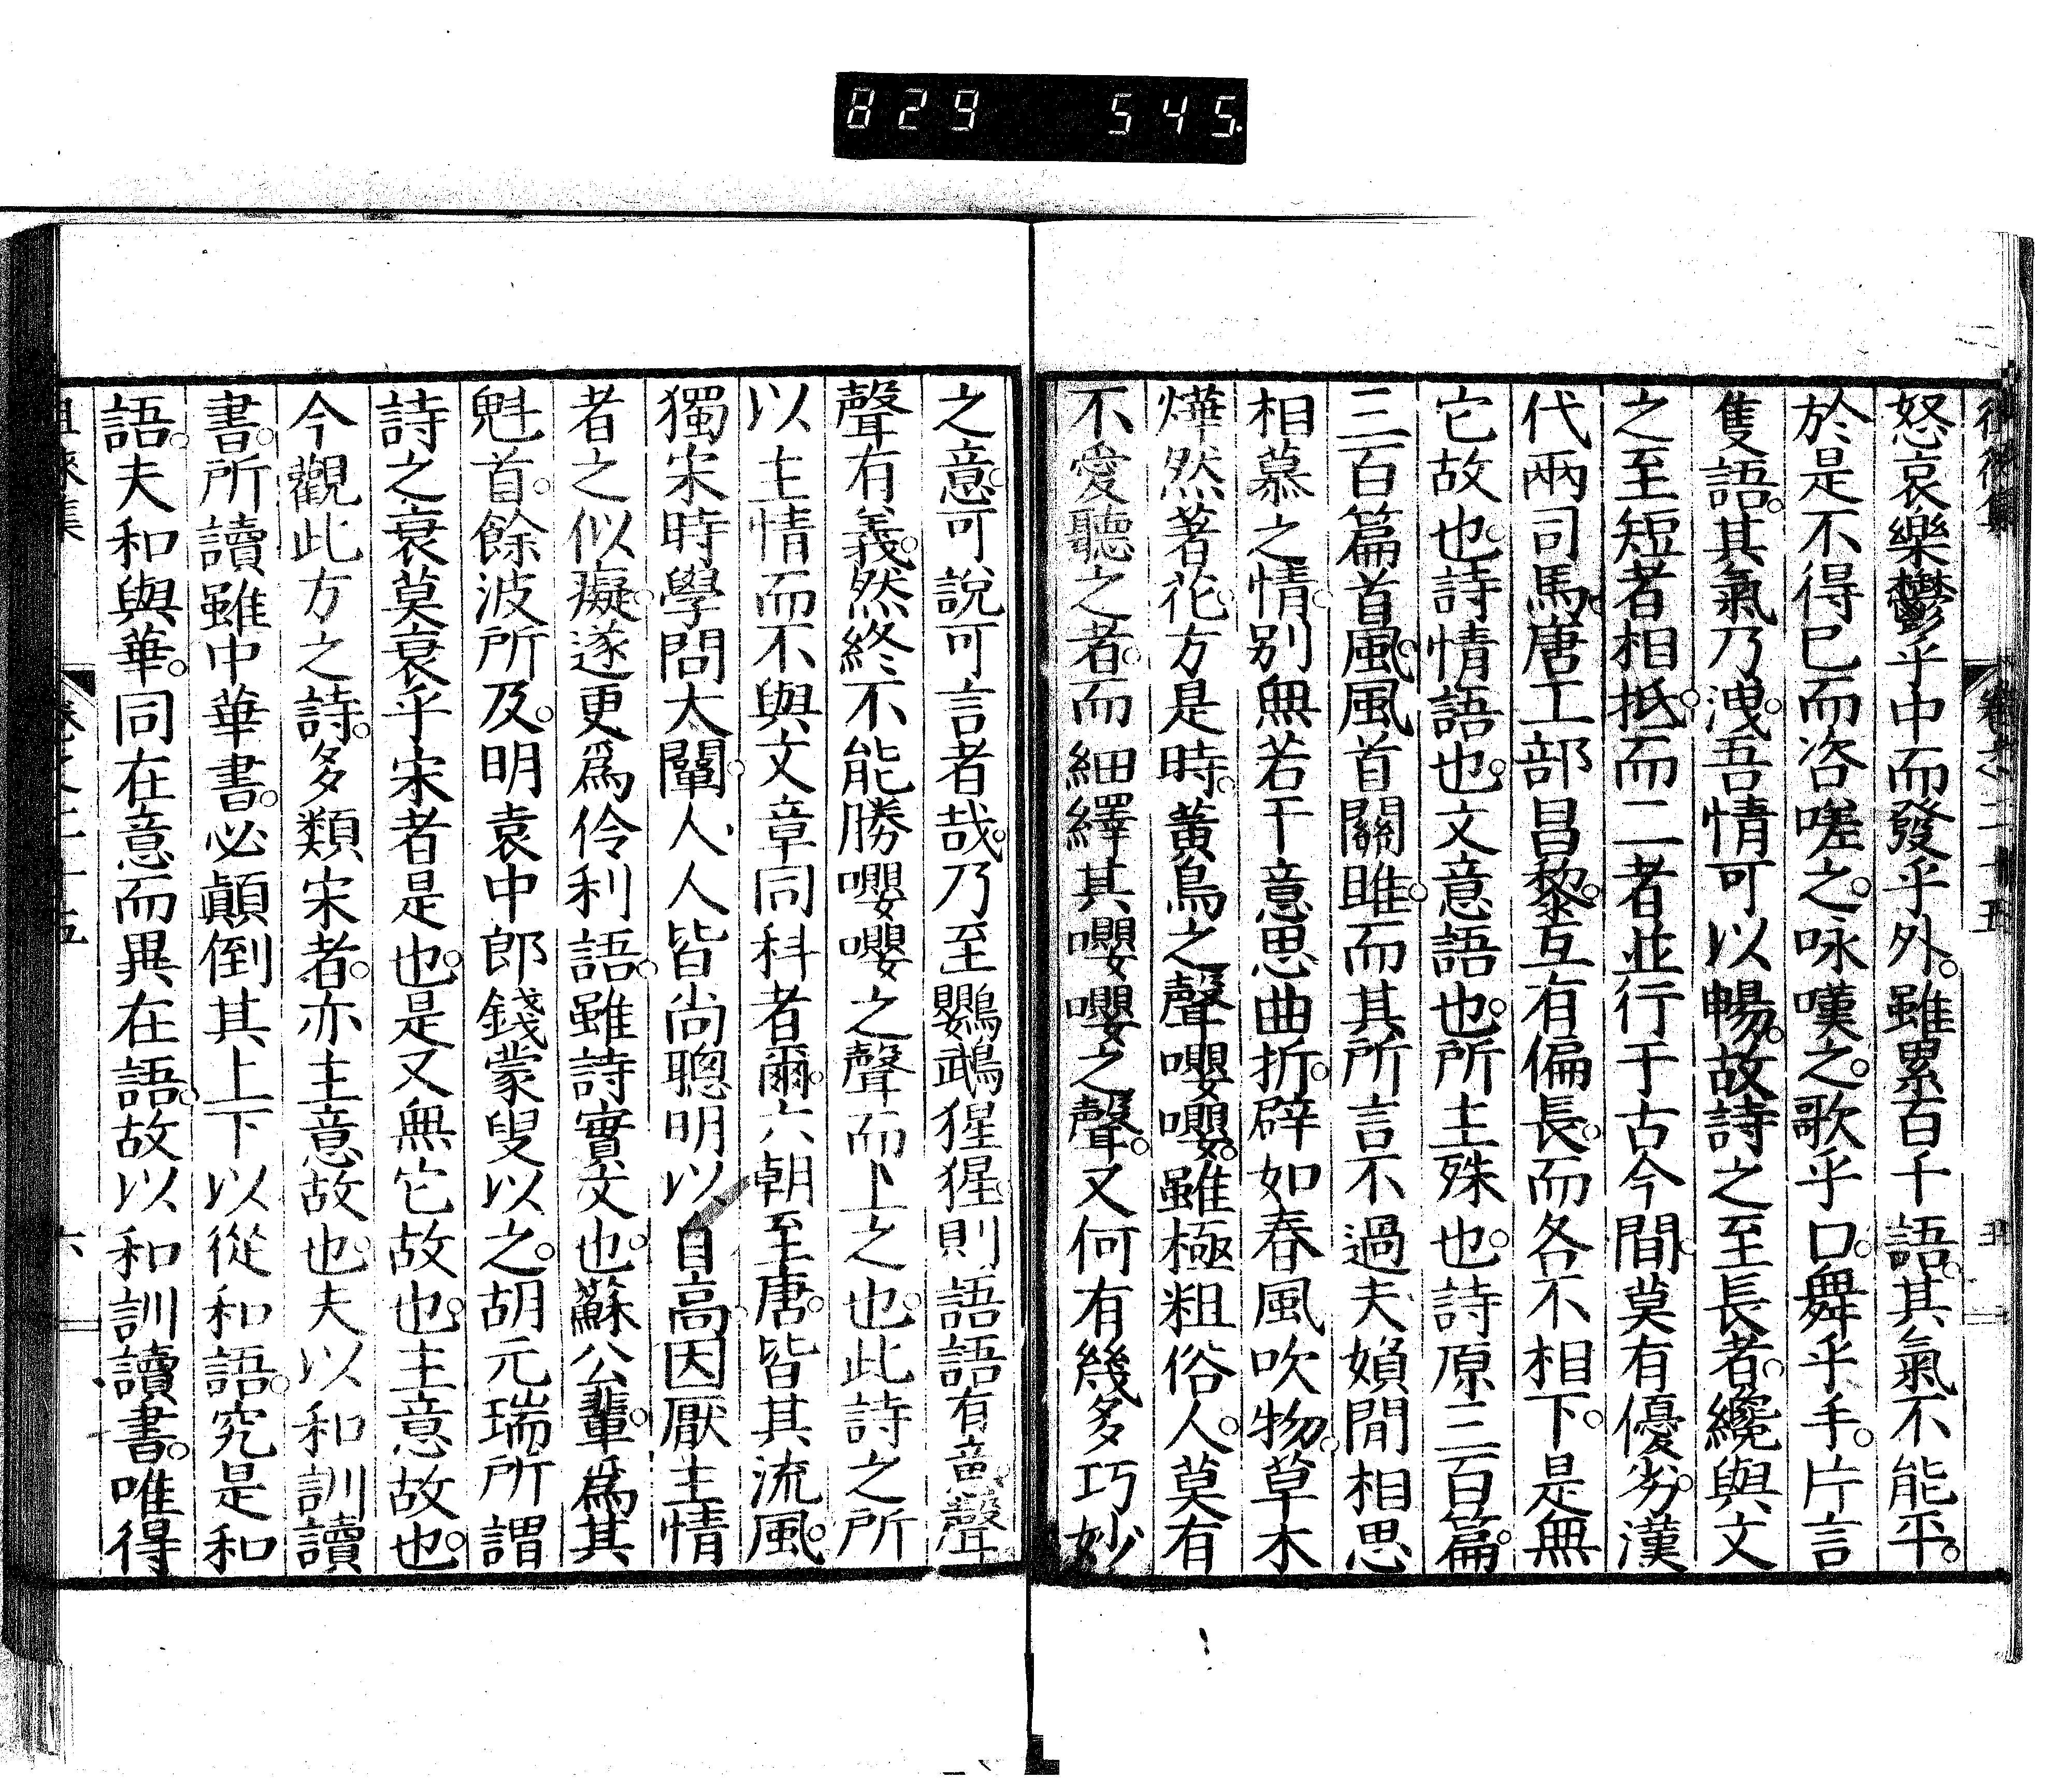 829 545
怒哀樂鬱乎中而發乎外。雖累百千語。其氣不能平。
於是不得已而咨嗟之。咏嘆之。歌乎口。舞乎手。片言
隻語。其氣乃洩。吾情可以暢。故詩之至長者。纔與文
之至短者相抵。而二者並行于古今間。莫有優劣。漢
代兩司馬。唐工部昌黎。互有偏長。而各不相下。是無
它故也。詩情語也。文意語也。所主殊也。詩原三百篇。
三百篇首風。風首關雎。而其所言不過夫婦閒相思
相慕之情。別無若干意思曲折。辟如春風吹物。草木
燁然著花。方是時。黃鳥之聲嚶嚶。雖極粗俗人。莫有
不愛聽之者。而細繹其嚶嚶之聲。又何有幾多巧妙
之意。可說可言者哉。乃至鸚鵡猩猩。則語語有意。聲
聲有義。然終不能勝嚶嚶之聲而上之也。此詩之所
以主情而不與文章同科者爾。六朝至唐。皆其流風。
獨宋時學問大闡。人人皆尚聰明以自高。因厭主情
者之似癡。遂更爲伶利語。雖詩實文也。蘇公輩。爲其
魁首。餘波所及。明袁中郎錢蒙叟以之。胡元瑞所謂
詩之衰莫衰乎宋者是也。是又無它故也。主意故也。
今觀此方之詩。多類宋者。亦主意故也。夫以和訓讀
書。所讀雖中華書。必顛倒其上下以從和語。究是和
語。夫和與華。同在意而異在語。故以和訓讀書。唯得
卷之二十五
六